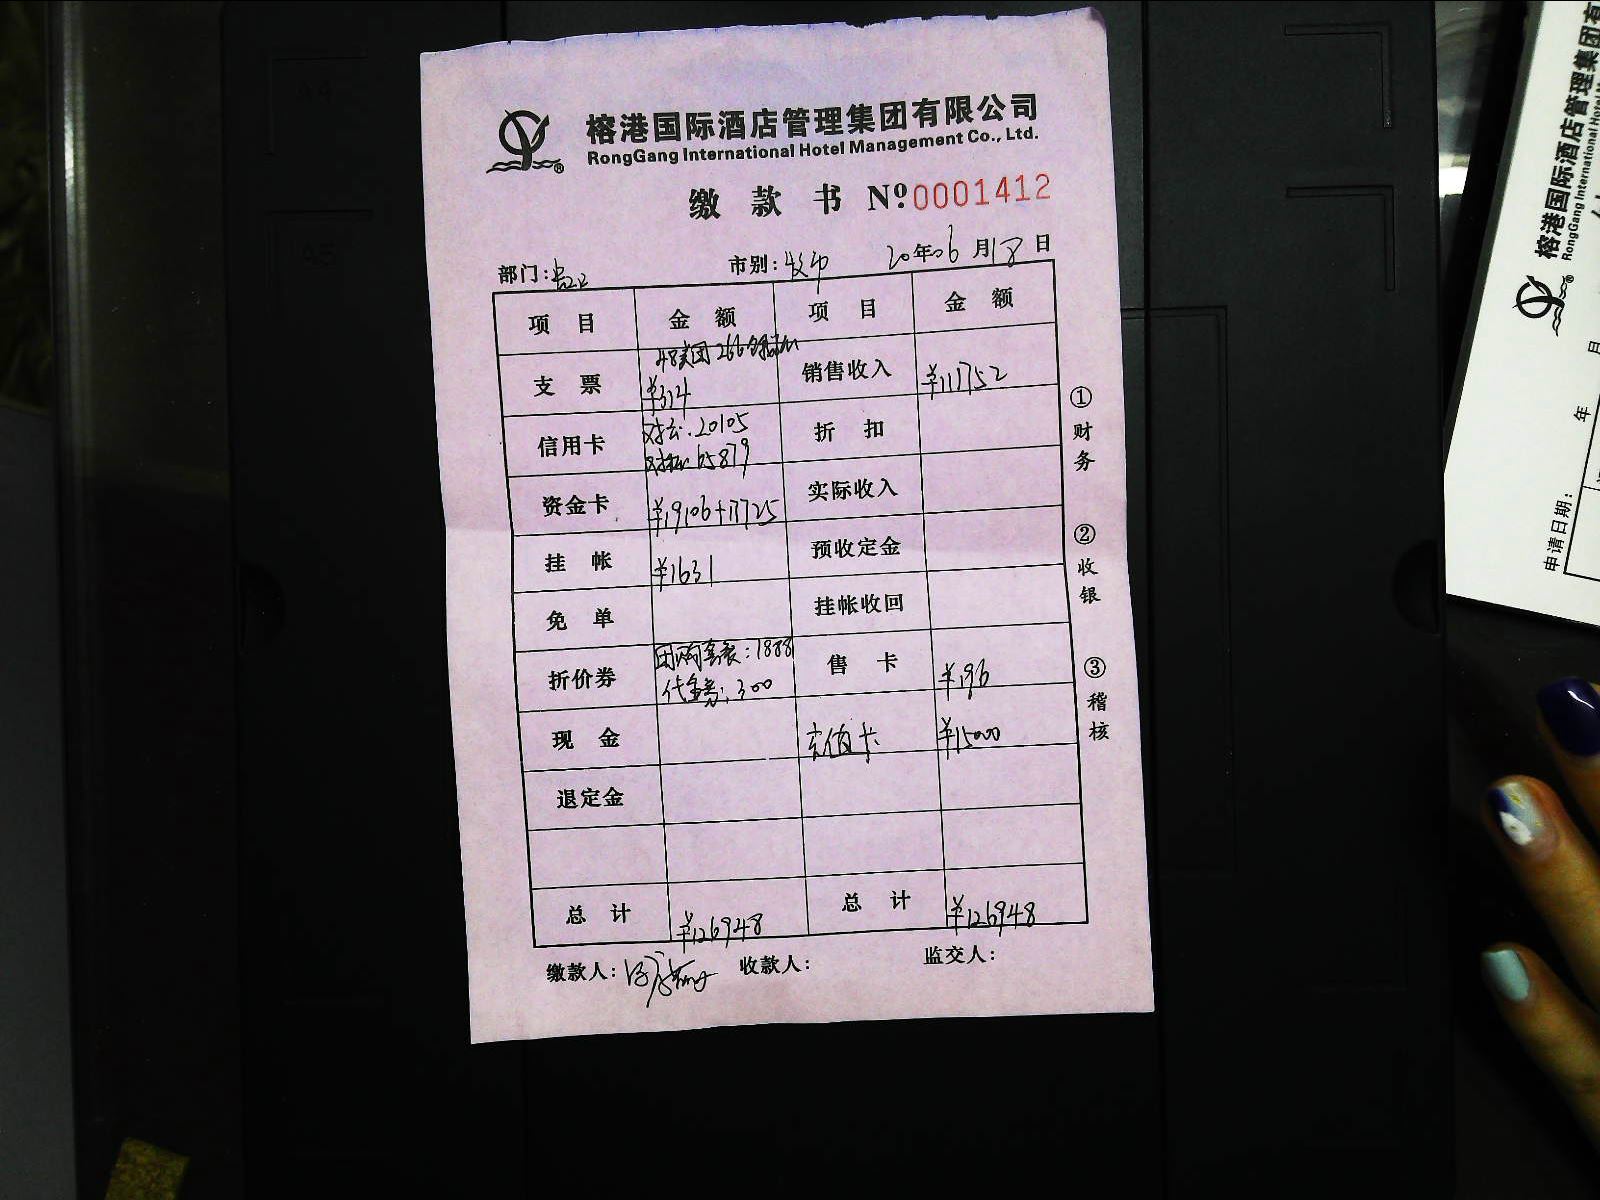 榕港国际酒店管理集团有限公司
RongGang International Hotel Management Co., Ltd.
缴 款 书 Nº 0001412
部门: 市别: 20年06月18日
项 目 金 额 项 目 金 额
48美团 266
支 票 ¥314 销售收入 ¥111752
信用卡 对公:20105 折 扣
65879
资金卡 ¥19106+17725 实际收入
挂 帐 ¥1631 预收定金
免 单 挂帐收回
折价券 团购套餐:1888 售 卡 ¥196
代金券:300
现 金 充值卡 ¥15000
退定金
总 计 ¥126948 总 计 ¥126948
缴款人: 收款人: 监交人:
①财务 ②收银 ③稽核
榕港国际酒店管理集团有
RongGang International Hotel
申请日期: 年 月